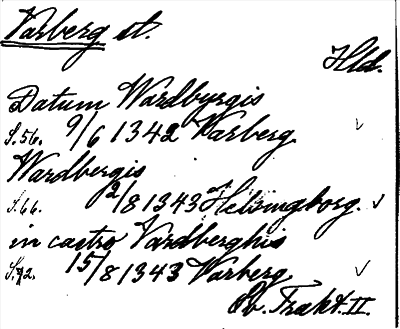 Varberg st.
Hld.
Datum Wardbyrgis
S. 56. 9/6 1342 Varberg
Wardbergis
S. 66. 2/8 1343 Helsingborg.
in castro Vardberghis
S. 72. 15/8 1343 Varberg
Sv. Trakt. II.